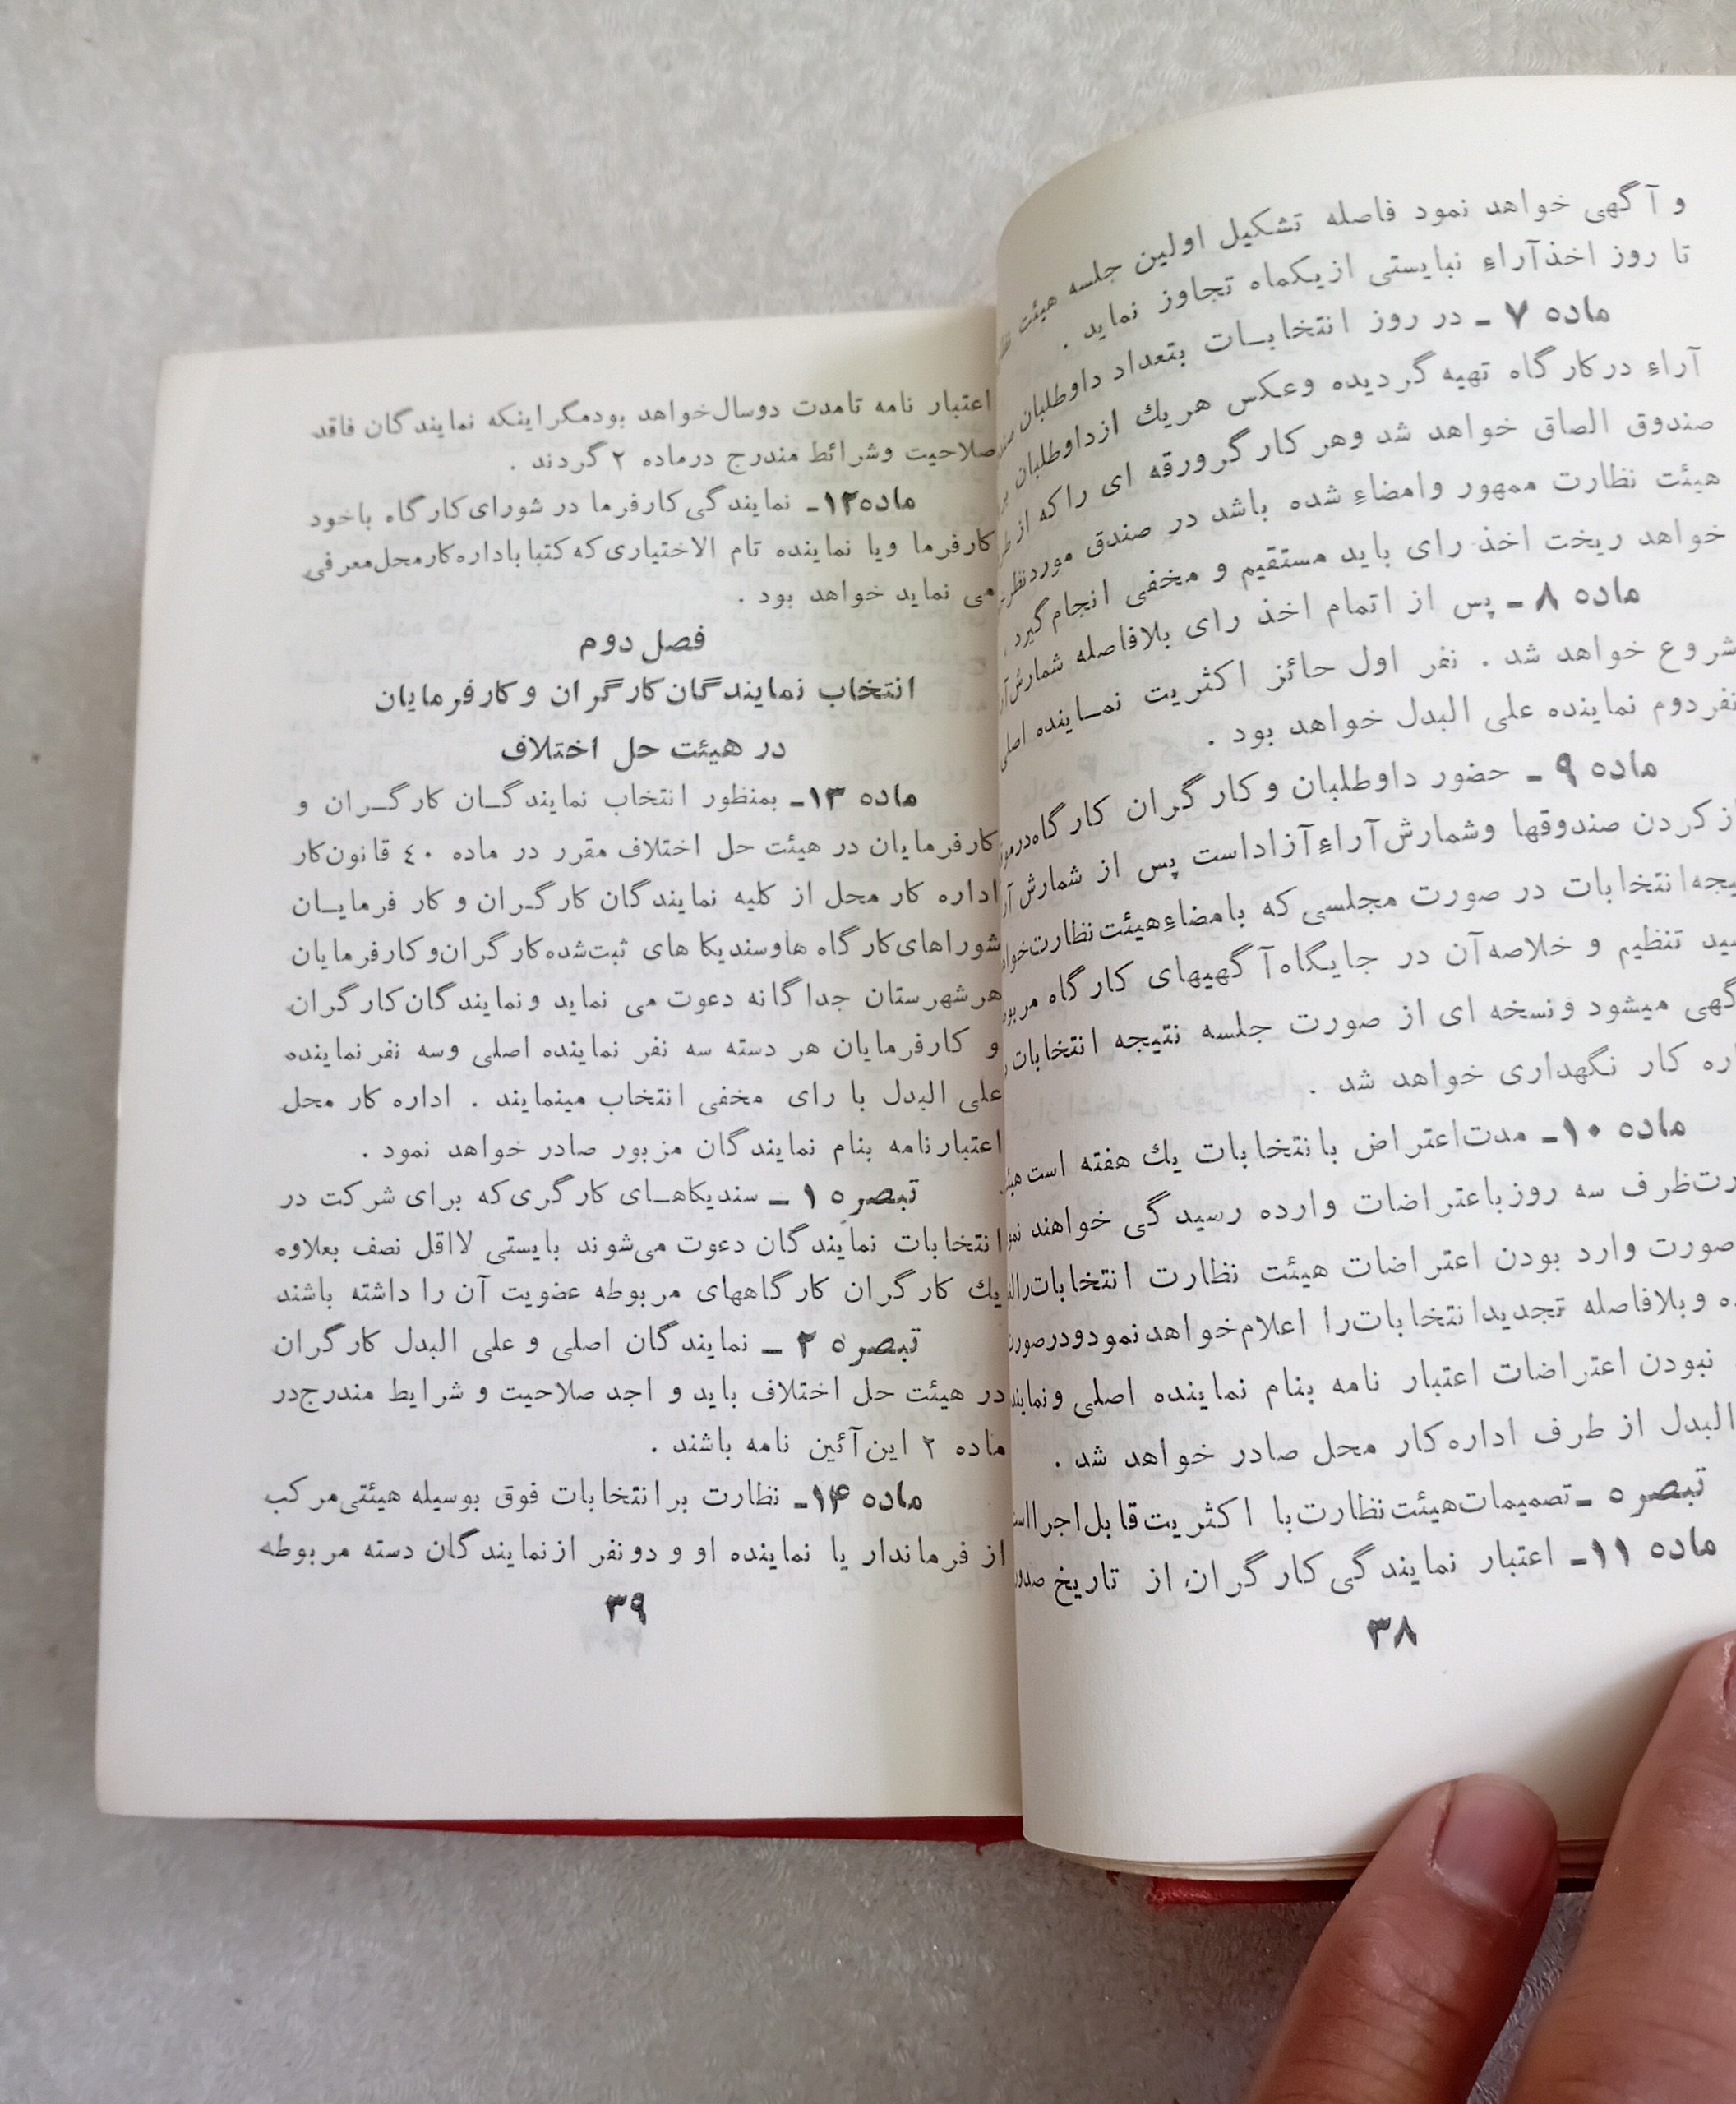 و آگهی خواهد نمود فاصله تشکیل اولین جلسه هیئت
تا روز اخذآراء نبایستی ازیکماه تجاوز نماید .
ماده ۷ ـ در روز انتخابـات بتعداد داوطلبان
آراء درکارگاه تهیه گردیده وعکس هریك ازداوطلبان
صندوق الصاق خواهد شد وهرکارگرورقه ای راکه از
هیئت نظارت ممهور وامضاء شده باشد در صندق موردنظر
خواهد ریخت اخذ رای باید مستقیم و مخفی انجام گیرد .
ماده ۸ ـ پس از اتمام اخذ رای بلافاصله شمارش
شروع خواهد شد . نفر اول حائز اکثریت نمـاینده اصلی
نفردوم نماینده علی البدل خواهد بود .
ماده ۹ ـ حضور داوطلبان وکارگران کارگاه
کردن صندوقها وشمارش‌آراءآزاداست پس از شمارش
انتخابات در صورت مجلسی که بامضاءهیئت نظارت
تنظیم و خلاصه‌آن در جایگاه‌آگهیهای کارگاه
میشود ونسخه ای از صورت جلسه نتیجه انتخابات
کار نگهداری خواهد شد .
ماده ۱۰ـ مدت‌اعتراض بانتخابات یك هفته است
ظرف سه روزباعتراضات وارده رسیدگی خواهند
صورت وارد بودن اعتراضات هیئت نظارت انتخابات
وبلافاصله تجدیدانتخابات‌را اعلام‌خواهدنمودودرصورت
نبودن اعتراضات اعتبار نامه بنام نماینده اصلی
البدل از طرف اداره‌کار محل صادر خواهد شد .
تبصره ـ تصمیمات‌هیئت‌نظارت‌با اکثریت‌قابل‌اجرا
ماده ۱۱ـ اعتبار نمایندگی‌کارگران از تاریخ
۳۸
اعتبار نامه تامدت دوسال‌خواهد بودمگراینکه نمایندگان فاقد
صلاحیت وشرائط مندرج درماده ۲ گردند .
ماده۱۲ـ نمایندگی‌کارفرما در شورای‌کارگاه باخود
کارفرما ویا نماینده تام الاختیاری‌که‌کتبا‌باداره‌کارمحل‌معرفی
می نماید خواهد بود .
فصل دوم
انتخاب نمایندگان‌کارگران وکارفرمایان
در هیئت حل اختلاف
ماده ۱۳ـ بمنظور انتخاب نمایندگـان کارگـران و
کارفرمایان در هیئت حل اختلاف مقرر در ماده ۴۰ قانون‌کار
اداره کار محل از کلیه نمایندگان کارگـران و کار فرمایـان
شوراهای‌کارگاه هاوسندیکا های ثبت‌شده‌کارگران‌وکارفرمایان
هرشهرستان جداگانه دعوت می نماید ونمایندگان‌کارگران
و کارفرمایان هر دسته سه نفر نماینده اصلی وسه نفرنماینده
علی البدل با رای مخفی انتخاب مینمایند . اداره کار محل
اعتبارنامه بنام نمایندگان مزبور صادر خواهد نمود .
تبصره ۱ ـ سندیکاهـای کارگری‌که برای شرکت در
انتخابات نمایندگان دعوت می‌شوند بایستی لااقل نصف بعلاوه
یك کارگران کارگاههای مربوطه عضویت آن را داشته باشند
تبصره ۲ ـ نمایندگان اصلی و علی البدل کارگران
در هیئت حل اختلاف باید و اجد صلاحیت و شرایط مندرج‌در
ماده ۲ این‌آئین نامه باشند .
ماده ۱۴ـ نظارت برانتخابات فوق بوسیله هیئتی‌مرکب
از فرماندار یا نماینده او و دونفر ازنمایندگان دسته مربوطه
۳۹